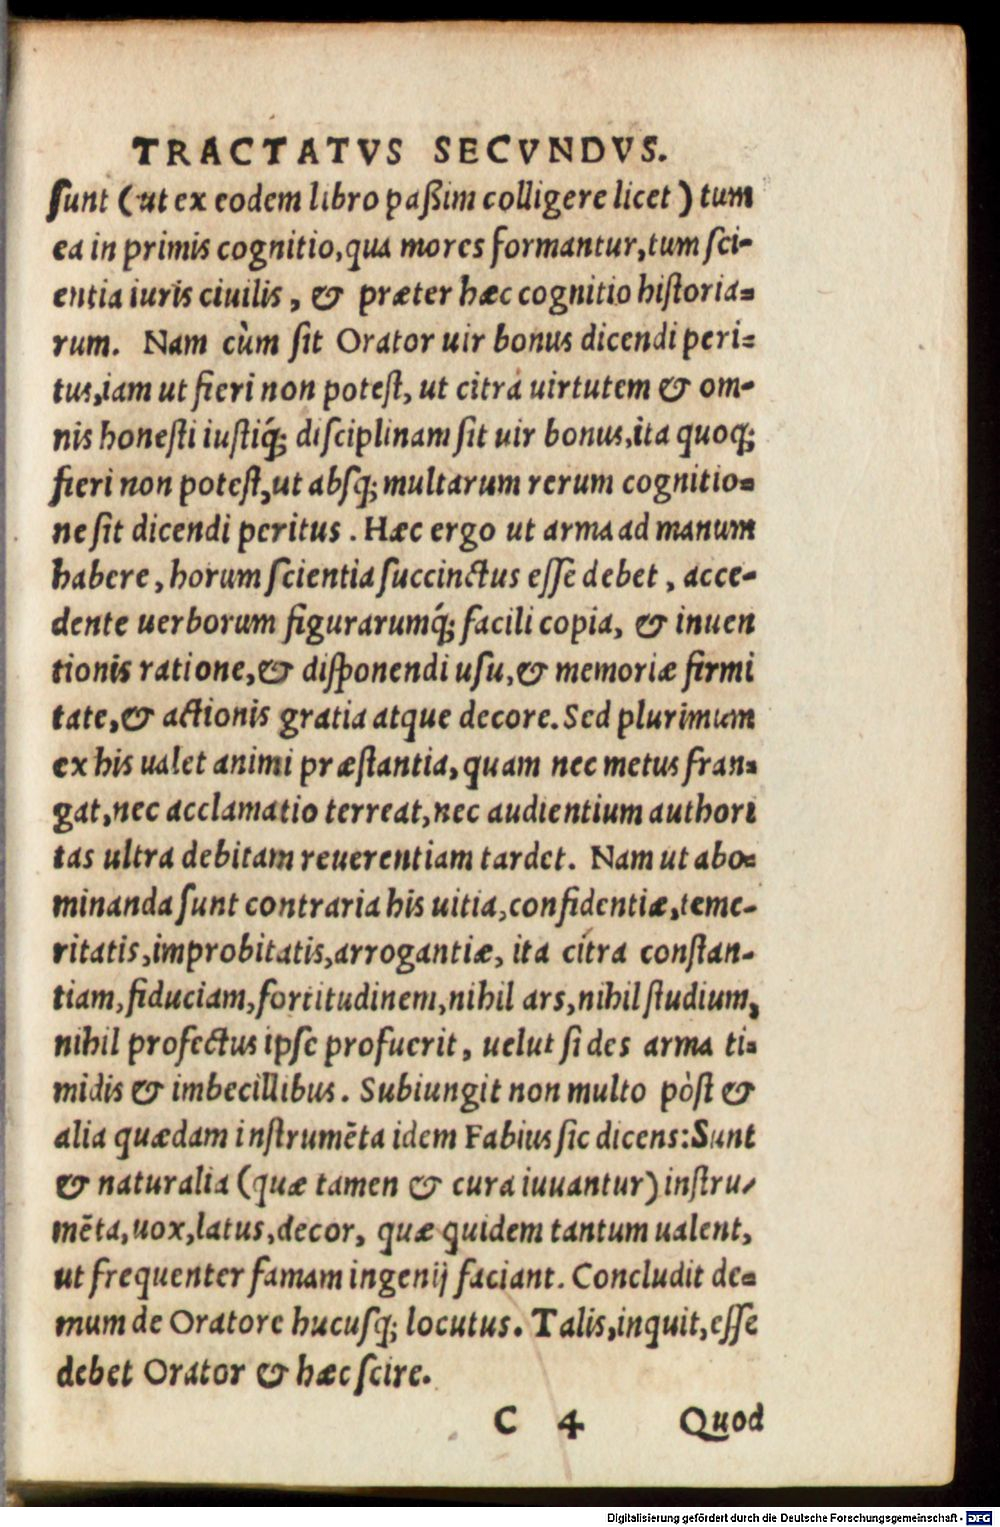 TRACTATVS SECVNDVS.
ſunt (ut ex eodem libro paßim colligere licet) tum
ea in primis cognitio, qua mores formantur, tum ſci-
entia iuris ciuilis, & præter hæc cognitio hiſtoria-
rum. Nam cùm ſit Orator uir bonus dicendi peri-
tus, iam ut fieri non poteſt, ut citra uirtutem & om-
nis honeſti iuſtiq́; diſciplinam ſit uir bonus, ita quoq;
fieri non poteſt, ut abſq; multarum rerum cognitio-
ne ſit dicendi peritus. Hæc ergo ut arma ad manum
habere, horum ſcientia ſuccinctus eſſe debet, acce-
dente uerborum figurarumq́; facili copia, & inuen
tionis ratione, & diſponendi uſu, & memoriæ firmi
tate, & actionis gratia atque decore. Sed plurimum
ex his ualet animi præſtantia, quam nec metus fran-
gat, nec acclamatio terreat, nec audientium authori
tas ultra debitam reuerentiam tardet. Nam ut abo-
minanda ſunt contraria his uitia, confidentiæ, teme-
ritatis, improbitatis, arrogantiæ, ita citra conſtan-
tiam, fiduciam, fortitudinem, nihil ars, nihil ſtudium,
nihil profectus ipſe profuerit, uelut ſi des arma ti-
midis & imbecillibus. Subiungit non multo pòſt &
alia quædam inſtrumēta idem Fabius ſic dicens: Sunt
& naturalia (quæ tamen & cura iuuantur) inſtru-
mēta, uox, latus, decor, quæ quidem tantum ualent,
ut frequenter famam ingenij faciant. Concludit de-
mum de Oratore hucuſq; locutus. Talis, inquit, eſſe
debet Orator & hæc ſcire.
C 4 Quod
Digitalisierung gefördert durch die Deutsche Forschungsgemeinschaft - DFG